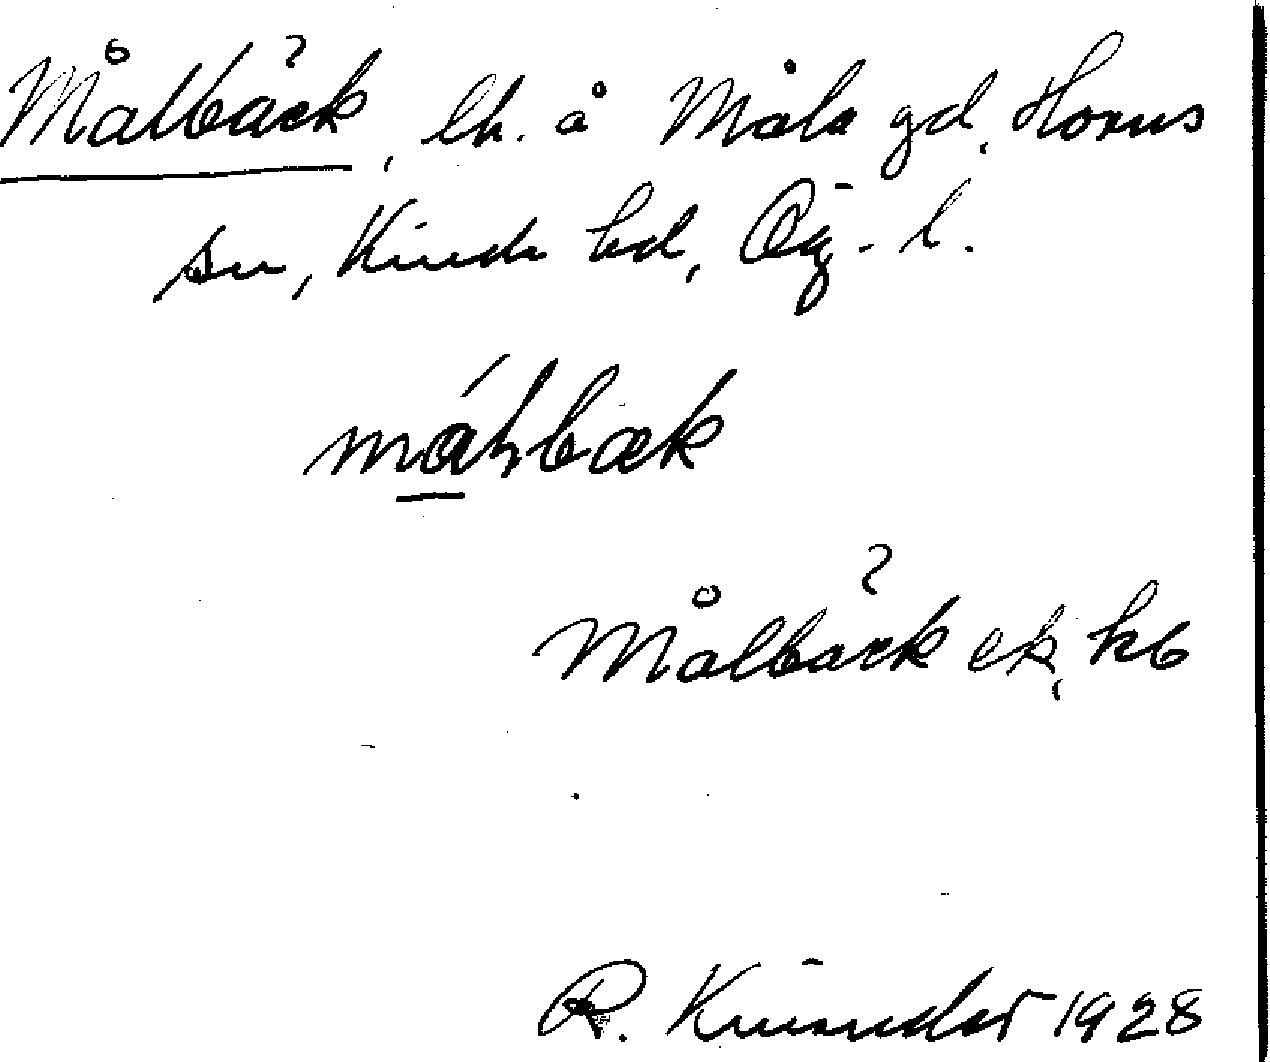 Målbäck, lh. å Måla gd, Horns
sn, Kinda hd, Ög. l.
Målbäck ek, kb
R. Kinander 1928